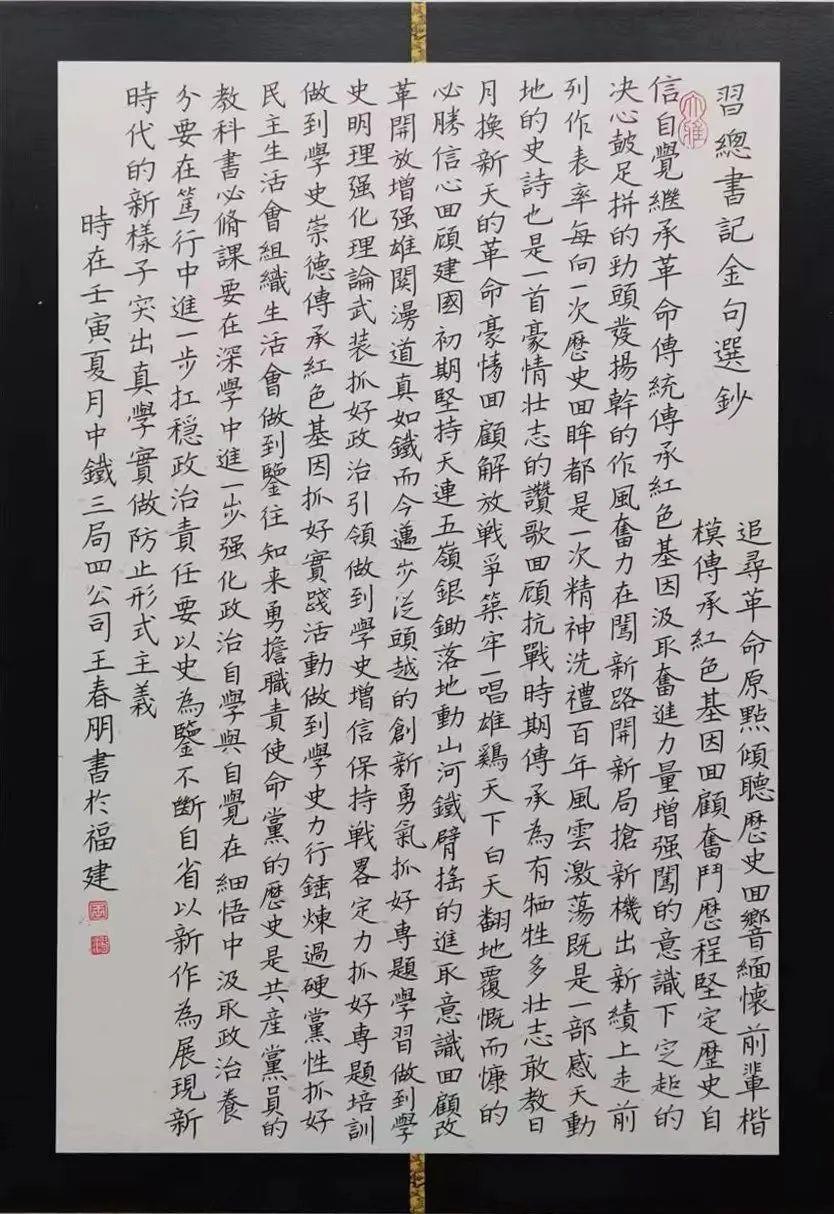 習總書記金句選鈔
追尋革命原點傾聽歷史回響緬懷前輩楷
模傳承紅色基因回顧奮鬥歷程堅定歷史自
信自覺繼承革命傳統傳承紅色基因汲取奮進力量增强闖的意識下定起的
决心鼓足拼的勁頭發揚幹的作風奮力在闖新路開新局搶新機出新績上走前
列作表率每向一次歷史回眸都是一次精神洗禮百年風雲激蕩既是一部感天動
地的史詩也是一首豪情壮志的讚歌回顧抗戰時期傳承為有牺牲多壮志敢教日
月換新天的革命豪情回顧解放戦爭築牢一唱雄鷄天下白天翻地覆慨而慷的
必勝信心回顧建國初期堅持天連五嶺銀鋤落地動山河鐵臂搖的進取意識回顧改
革開放增强雄関漫道真如鐵而今邁步從頭越的創新勇氣抓好専題學習做到學
史明理强化理論武装抓好政治引領做到學史增信保持戦畧定力抓好専題培訓
做到學史崇德傳承紅色基因抓好實踐活動做到學史力行錘煉過硬黨性抓好
民主生活會組織生活會做到鑒往知来勇擔職責使命黨的歷史是共産黨員的
教科書必脩課要在深學中進一步强化政治自學與自覺在細悟中汲取政治養
分要在篤行中進一步扛穩政治責任要以史為鑒不斷自省以新作為展現新
時代的新樣子突出真學實做防止形式主義
時在壬寅夏月中鐵三局四公司王春朋書於福建